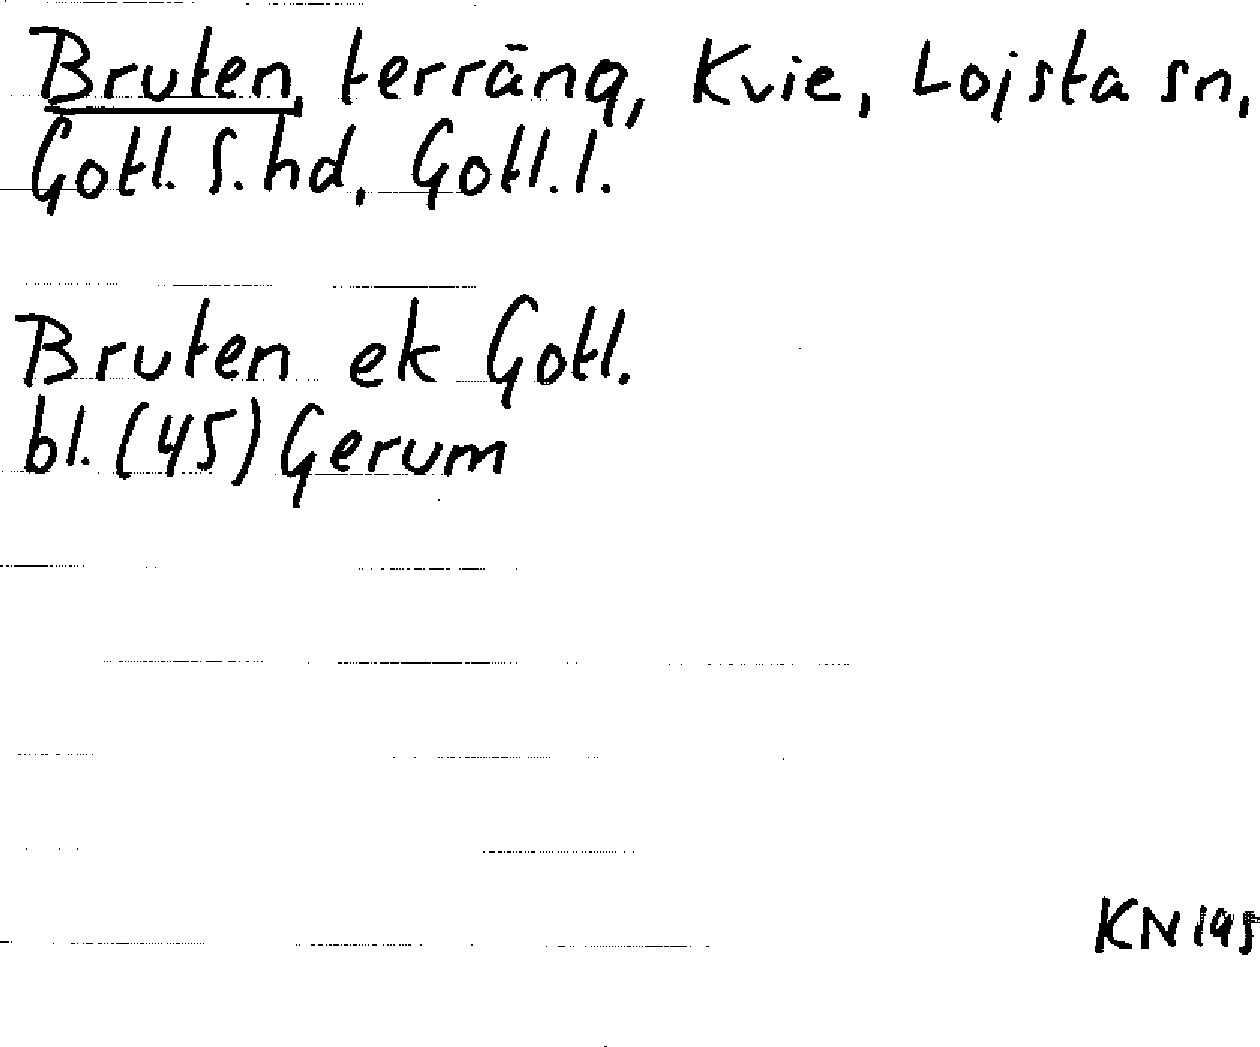 Bruten, terräng, Kvie, Lojsta sn,
Gotl. S. hd, Gotl. l.
Bruten ek Gotl.
bl. (45) Gerum
KN 195